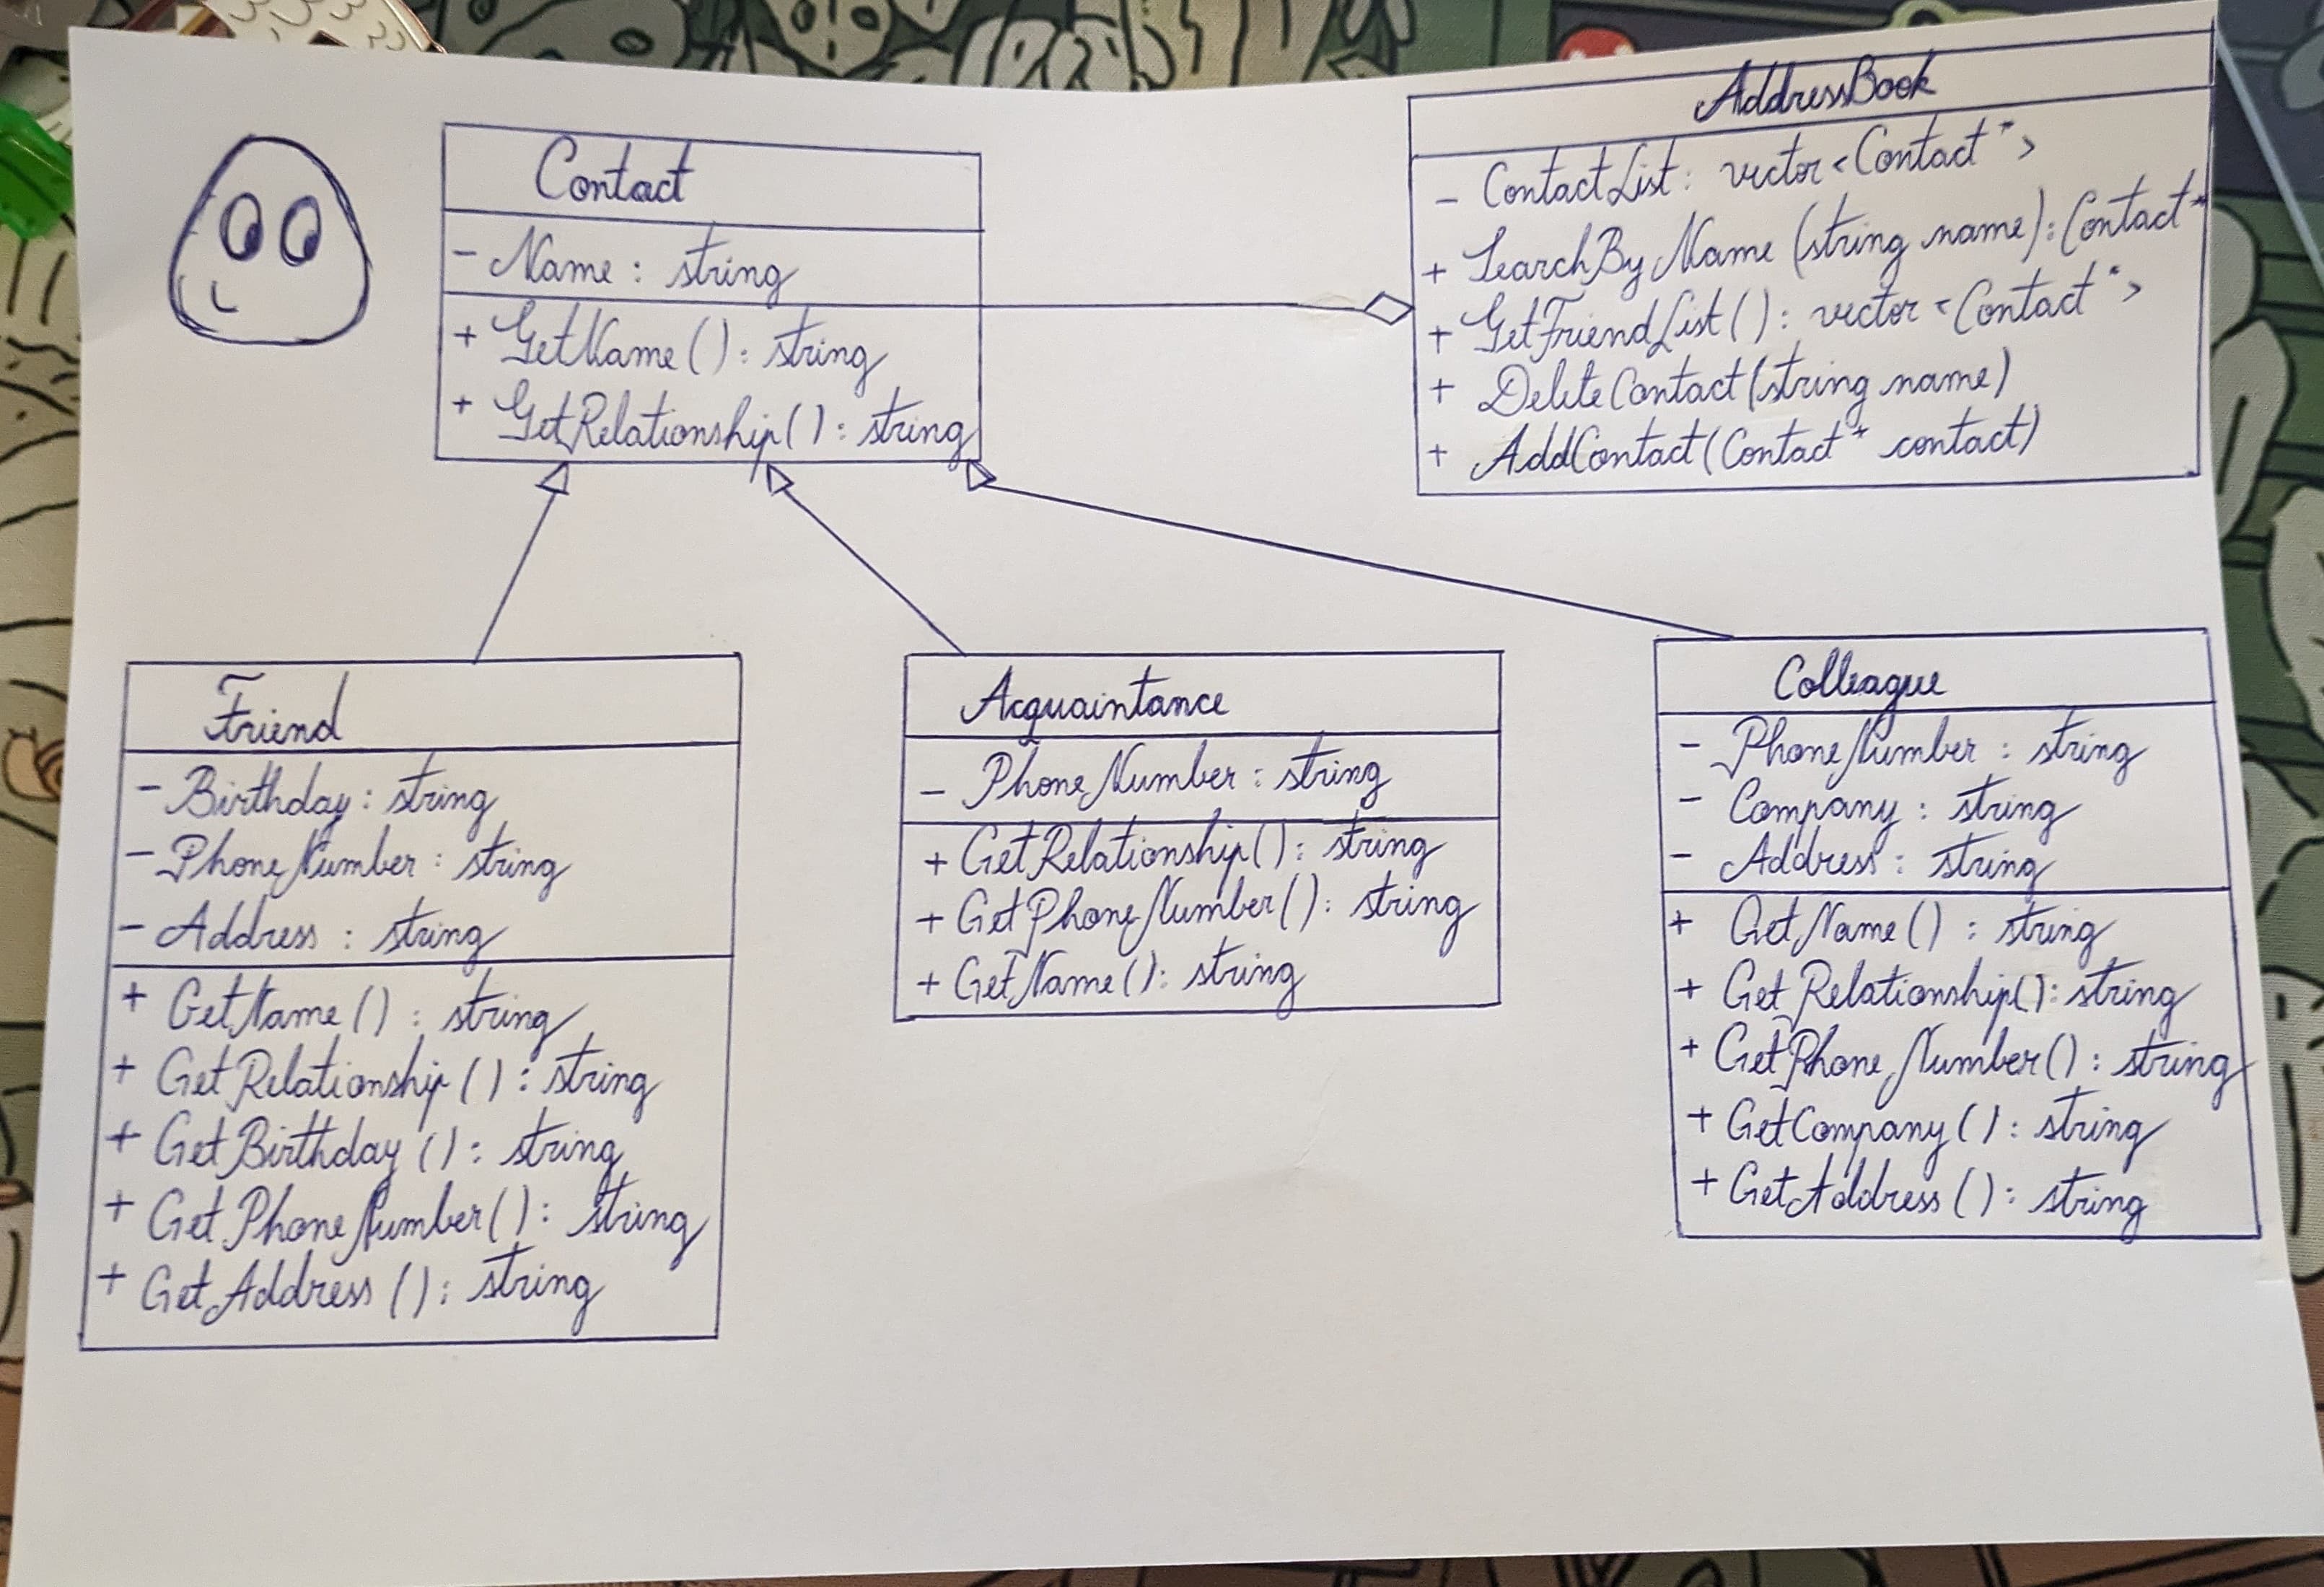 Contact
- Name : string
+ GetName () : string
+ GetRelationship() : string
AddressBook
- ContactList : vector <Contact*>
+ SearchByName (string name) : Contact*
+ GetFriendList () : vector <Contact*>
+ DeleteContact(string name)
+ AddContact(Contact* contact)
Friend
- Birthday : string
- PhoneNumber : string
- Address : string
+ GetName () : string
+ GetRelationship () : string
+ GetBirthday () : string
+ GetPhoneNumber() : string
+ GetAddress () : string
Acquaintance
- PhoneNumber : string
+ GetRelationship() : string
+ GetPhoneNumber() : string
+ GetName() : string
Colleague
- PhoneNumber : string
- Company : string
- Address : string
+ GetName () : string
+ GetRelationship() : string
+ GetPhoneNumber() : string
+ GetCompany () : string
+ GetAddress () : string